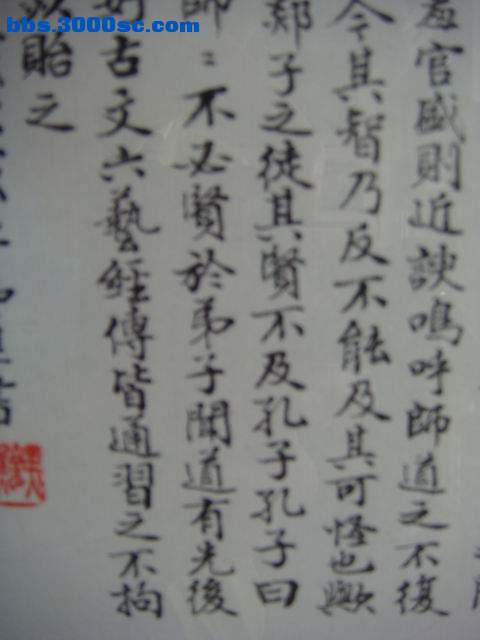 bbs.3000sc.com
羞官盛則近諛嗚呼師道之不復
今其智乃反不能及其可怪也歟
郯子之徒其賢不及孔子孔子曰
師：不必賢於弟子聞道有先後
好古文六藝經傳皆通習之不拘
以貽之